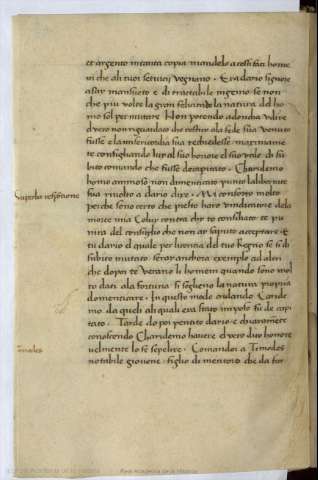 et argento in tanta copia mandelo a cossi fati home
ni che ali tuoi servicii vegnano. Era dario signore
assay mansueto e di tractabile ingenio se non
che piu volte la gran felicita de la natura del ho
mo sol permutare. Non potendo adoncha udire
el vero non riguardato che costui ala fede sua venuto
fusse e la misericordia sua rechiedesse maximame
te consigliando lui al suo honore el suo utile di su
bito comando che fusse decapitato. Charidemo
homo ammoso non dimenticato punto la liberta
sua rivolto a dario dixe. Mi conforto molto
perche sono certo che presto haro vindicatore dela
morte mia Colui contra chi to consiliato te pu
nira del consiglio che non ai saputo acceptare. E
tu dario el quale per licentia del tuo Regno se si di
subito mutato serai anchora exemplo ad altri
che dopoi te verano li homeni quando sono mol
to dati ala fortuna si sogliono la natura propria
domenticare. In questo modo cridando Caride
mo da queli ali quali era stato imposto fu decapi
tato. Tarde dopoi pentito dario e chiaramete
conoscendo Charidemo havere el vero duo honore
velmente lo fe sepelire. Comandoi a Timodes
notabile giovene figlio di mentore che da tut
Superba responsione
Timodes
Real Academia de la Historia